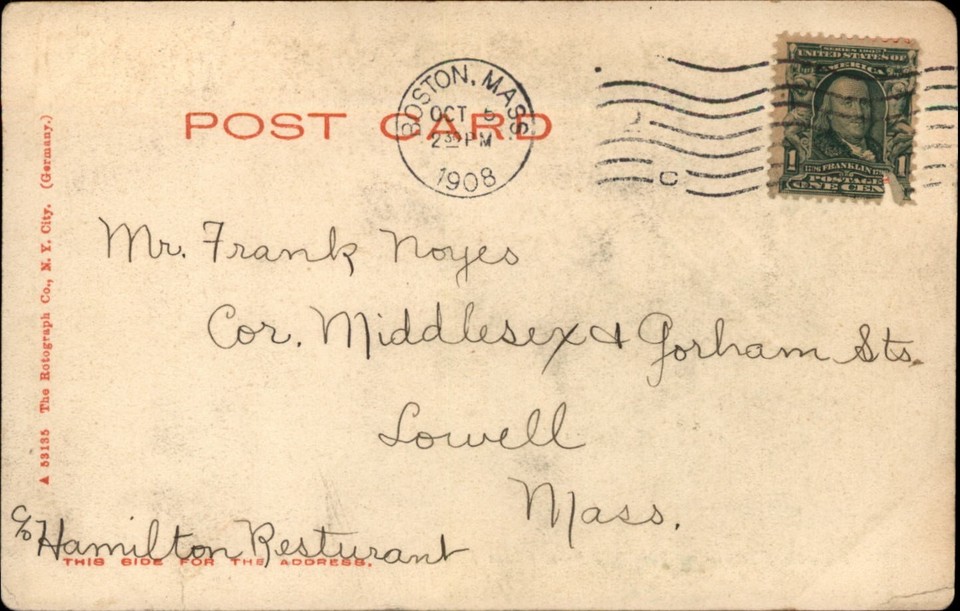 POST CARD
BOSTON, MASS.
OCT 5
2 30 PM
1908
C
SERIES 1902
UNITED STATES OF
AMERICA
1 FRANKLIN 1
POSTAGE
ONE CEN
Mr. Frank Noyes
Cor. Middlesex & Gorham Sts.
Lowell
Mass.
c/o Hamilton Resturant
THIS SIDE FOR THE ADDRESS.
A 53135 The Rotograph Co., N. Y. City. (Germany.)